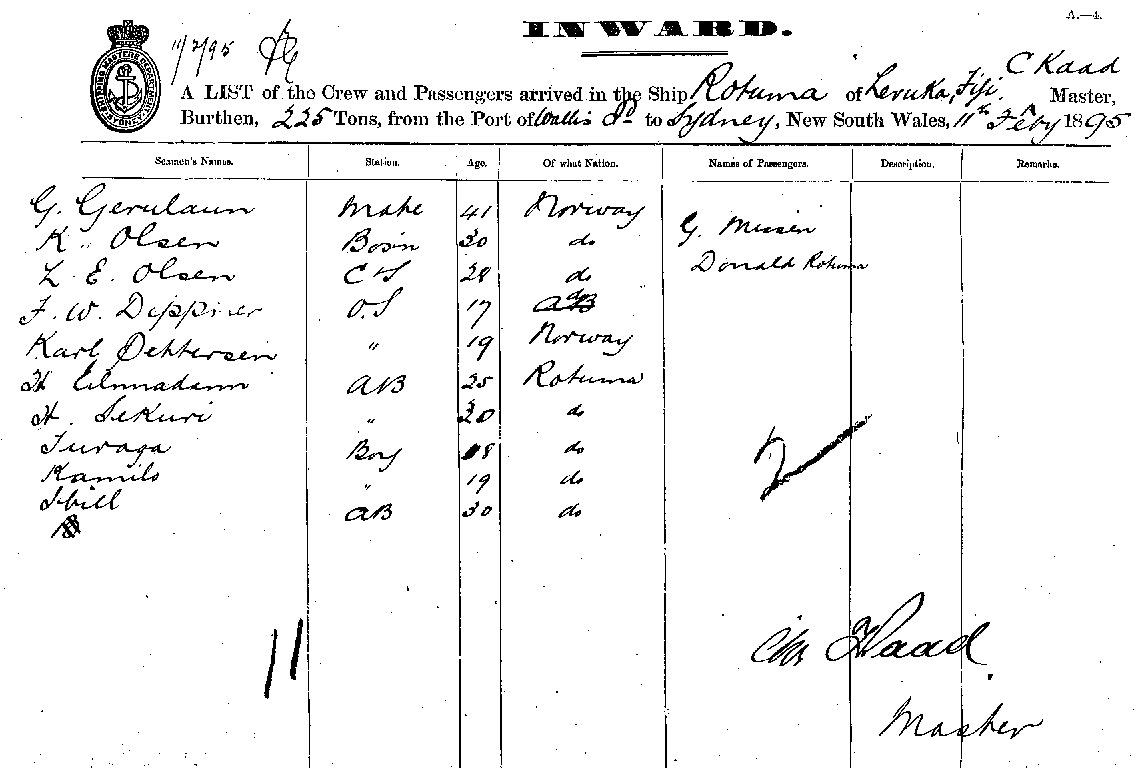 A.—4.
INWARD.
11/2/95
C Kaad
A LIST of the Crew and Passengers arrived in the Ship Rotuma of Levuka, Fiji. Master,
Burthen, 225 Tons, from the Port of Wallis Sd to Sydney, New South Wales, 11th Feby 1895
Seamen's Names. Station. Age. Of what Nation. Names of Passengers. Description. Remarks.
G. Mate 41 Norway G.
K. Olsen Bosn 30 do Donald Rotuma
L. E. Olsen C&S 28 do
F. W. O.S 17 do
Karl 19 Norway
H AB 25 Rotuma
H. Sekuri " 30 do
Turaga Boy 18 do
Kamilo " 19 do
AB 30 do
2
11
Chs Kaad
Master